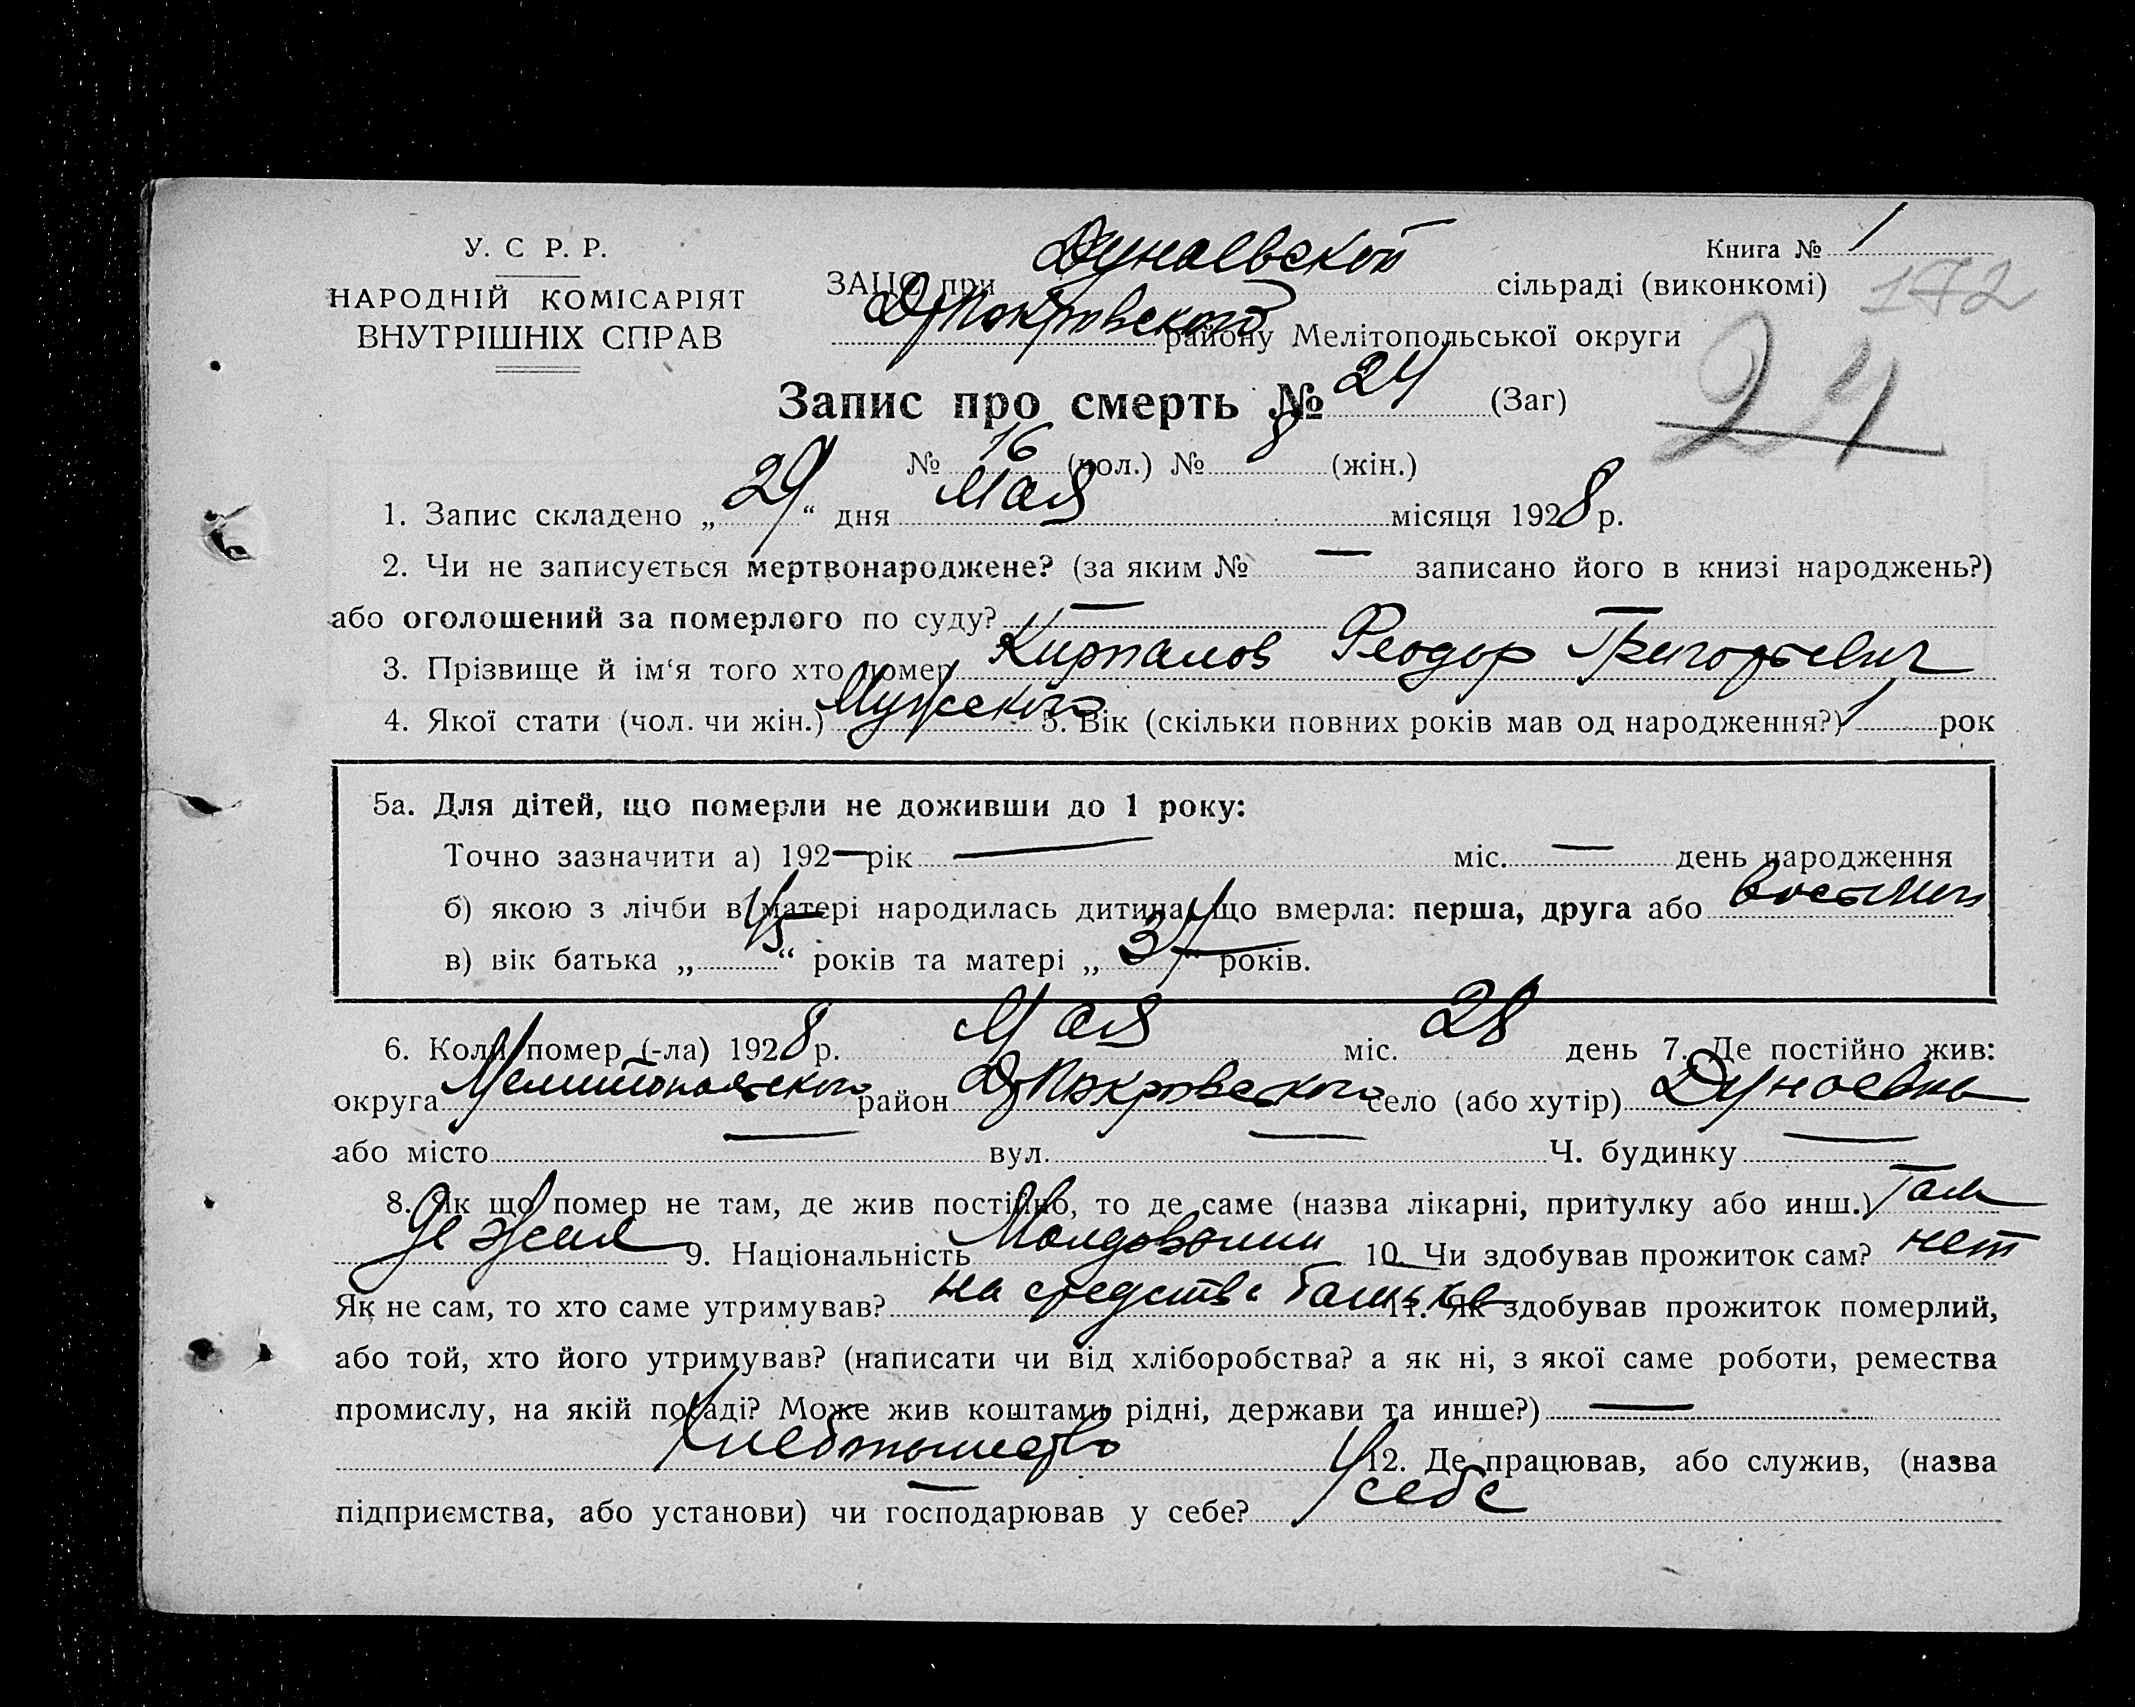 У. С Р. Р.
НАРОДНІЙ КОМІСАРІЯТ
ВНУТРІШНІХ СПРАВ
Книга № 1
ЗАЦС при Дунаевской сільраді (виконкомі)
172
Д/Покровского району Мелітопольської округи
24
Запис про смерть № 24 (Заг)
№ 16 (чол.) № 8 (жін.)
1. Запис складено „29“ дня Мая місяця 1928 р.
2. Чи не записується мертвонароджене? (за яким № — записано його в книзі народжень?)
або оголошений за померлого по суду? —
3. Прізвище й ім‘я того хто помер Феодор Григорьевич
4. Якої стати (чол. чи жін.) Мужского 5. Вік (скільки повних років мав од народження?) 1 рок
5а. Для дітей, що померли не доживши до 1 року:
Точно зазначити а) 192— рік — міс. — день народження
б) якою з лічби в матері народилась дитина, що вмерла: перша, друга або
в) вік батька „45“ років та матері „37“ років.
6. Коли помер (-ла) 1928 р. Мая міс. 28 день 7. Де постійно жив:
округа Мелитопольского район Д/Покровского село (або хутір) Дунаевка
або місто — вул. — Ч. будинку —
8. Як що помер не там, де жив постійно, то де саме (назва лікарні, притулку або инш.) Там
де жил 9. Національність Молдованин 10. Чи здобував прожиток сам? нет
Як не сам, то хто саме утримував? на средства батька 11. Як здобував прожиток померлий,
або той, хто його утримував? (написати чи від хліборобства? а як ні, з якої саме роботи, ремества
промислу, на якій посаді? Може жив коштами рідні, держави та инше?) —
Хлебопашество 12. Де працював, або служив, (назва
підприємства, або установи) чи господарював у себе? У себе